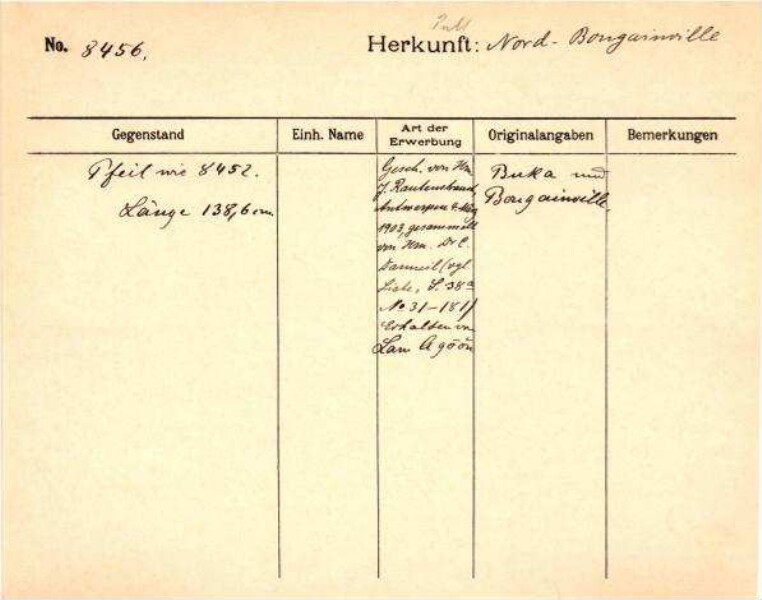 No. 8456.
Herkunft: Nord-Bougainville
Gegenstand
Einh. Name
Art der Erwerbung
Originalangaben
Bemerkungen
Pfeil wie 8452.
Länge 138,6 cm.
Gesch. von Hrn.
J. Rautenstrauch,
Antwerpen
1903, gesammelt
von Hrn. Dr C.
Danneil (vgl.
Liste, S. 38a
No 31-181)
Erhalten von
Lam Agöön
Buka und
Bougainville.